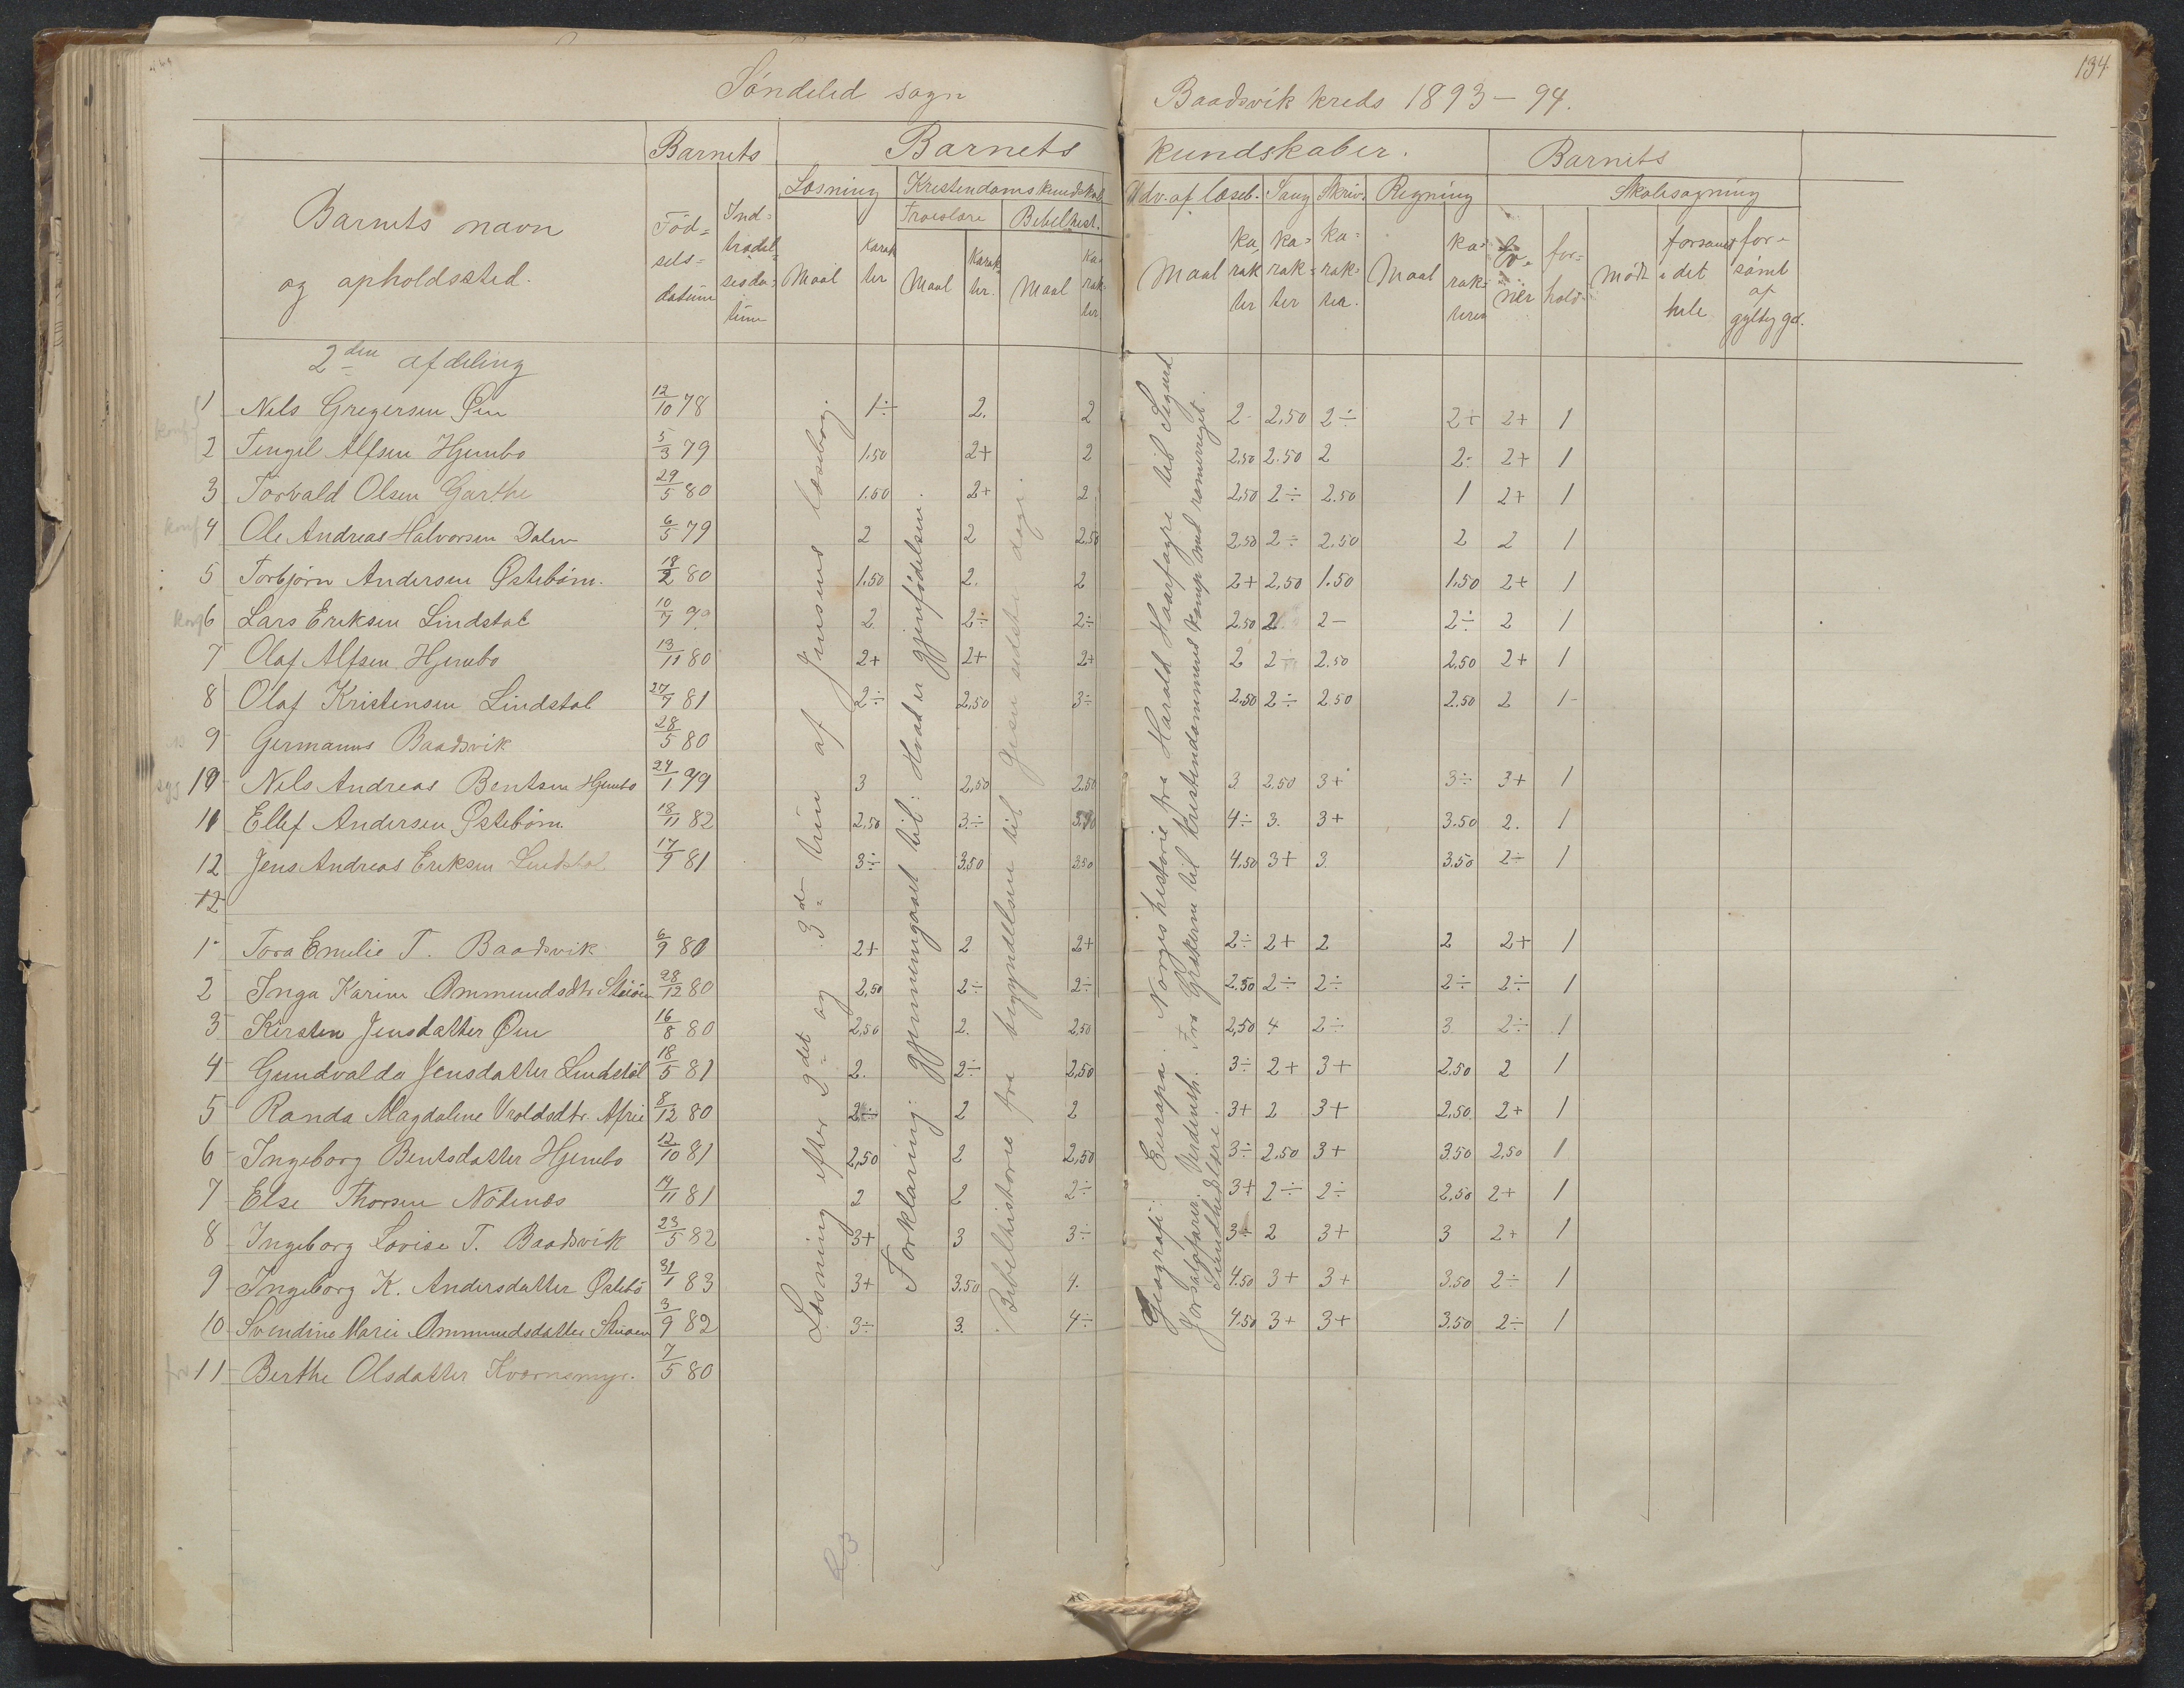 134
Söndeled sogn
Baadsvik kreds 1893-94.
Barnets
Barnets
kundskaber.
Barnets
Barnets navn
og opholdssted.
Föd=
sels=
datum
Ind=
trædel=
sesda=
tum
Læsning
Kristendomskundskab
Udv. af læseb.
Sang
Skriv.
Regning
Skolesøgning
Troeslære
Bibelhist.
Maal
Karak
ter
Maal
Karak
ter.
Maal
Ka-
rak-
ter
Maal
ka,
rak
ter
ka=
rak=
ter
ka=
rak=
ter.
Maal
ka=
rak=
teren
for=
hold
mödt
forsömt
i det
hele
for-
sömt
af
gyldig gd.
2den afdeling
1 Nils Gregersen Øen 12/10 78 1÷ 2. 2 2- 2,50 2÷ 2+ 2+ 1
konf
2 Tengel Alfsen Hjembo 5/3 79 1.50 2+ 2 2,50 2.50 2 2÷ 2+ 1
3 Torvald Olsen Garthe 29/5 80 1.50 2+ 2 2,50 2÷ 2.50 1 2+ 1
konf 4 Ole Andreas Halvorsen Dalen 6/5 79 2 2 2,50 2,50 2÷ 2.50 2 2 1
5 Torbjörn Andersen Østeböm. 18/2 80 1.50 2. 2 2+ 2,50 1.50 1.50 2+ 1
6 Lars Eriksen Lindstöl 10/7 79 2 2÷ 2÷ 2.50 2 2- 2÷ 2 1
7 Olaf Alfsen Hjembo 13/11 80 2+ 2+ 2+ 2 2÷ 2.50 2,50 2+ 1
8 Olaf Kristensen Lindstøl 27/7 81 2÷ 2,50 3÷ 2,50 2÷ 2.50 2.50 2 1-
9 Germanus Baadsvik 28/5 80
10 Nils Andreas Bentsen Hjembo 24/1 79 3 2,50 2.50 3 2.50 3+ 3÷ 3+ 1
11 Ellef Andersen Østeböm. 18/11 82 2,50 3÷ 3,50 4÷ 3. 3+ 3.50 2. 1
12 Jens Andreas Eriksen Lindstøl 17/9 81 3÷ 3.50 3.50 4.50 3+ 3. 3.50 2÷ 1
12
1 Tora Emelie T. Baadsvik 6/9 80 2+ 2 2+ 2÷ 2+ 2 2 2+ 1
2 Inga Karine Ommundsdtr Stuöen 28/12 80 2,50 2÷ 2÷ 2.50 2÷ 2÷ 2÷ 2÷ 1
3 Kirsten Jensdatter Øen 16/8 80 2,50 2. 2,50 2,50 4 2÷ 3. 2÷ 1
4 Gundvalda Jensdatter Lindstöl 18/5 81 2. 2÷ 2,50 3÷ 2+ 3+ 2.50 2 1
5 Randa Magdaline Vroldsdtr. 8/12 80 2÷ 2 2 3+ 2 3+ 2,50 2+ 1
6 Ingeborg Bentsdatter Hjembo 12/10 81 2,50 2 2,50 3÷ 2.50 3+ 3.50 2,50 1
7 Else Thorsen Nödenæs 14/11 81 2 2 2÷ 3+ 2÷ 2÷ 2,50 2+ 1
8 Ingeborg Lovise T. Baadsvik 23/5 82 3+ 3 3÷ 3÷ 2 3+ 3 2+ 1
9 Ingeborg K. Andersdatter Østebö 31/1 83 3+ 3.50 4. 4.50 3+ 3+ 3.50 2÷ 1
10 Svendine Marie Ommundsdatter Stuoen 3/9 82 3÷ 3. 4÷ 4.50 3+ 3+ 3.50 2÷ 1
11 Berthe Olsdatter Kvernsmyr. 7/5 80
Læsning efter 2det og 3de trin af Jensens læsebog.
Forklaring: gjennemgaaet til: Hvad er gjenfödelsen.
Bibelhistorie fra begyndelsen til Jesu sidste dage.
Geografi: Europa. Norges historie fra Harald Haarfagre til Sigurd
Jorsalafarer. Verdensh. Fra Grækerne til kristendommens kamp med romerriget.
Sundhedslære.
23